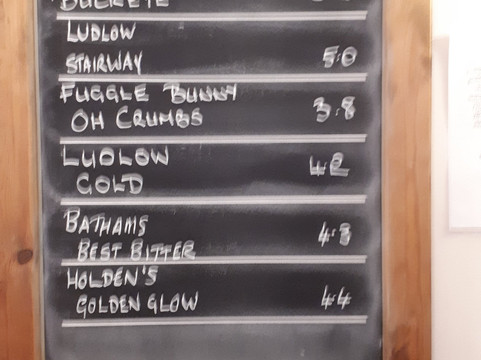 LUDLOW
STAIRWAY 5.0
FUGGLE BUNNY
OH CRUMBS 3.8
LUDLOW 4.2
GOLD
BATHAMS
BEST BITTER 4.3
HOLDEN'S
GOLDEN GLOW 4.4